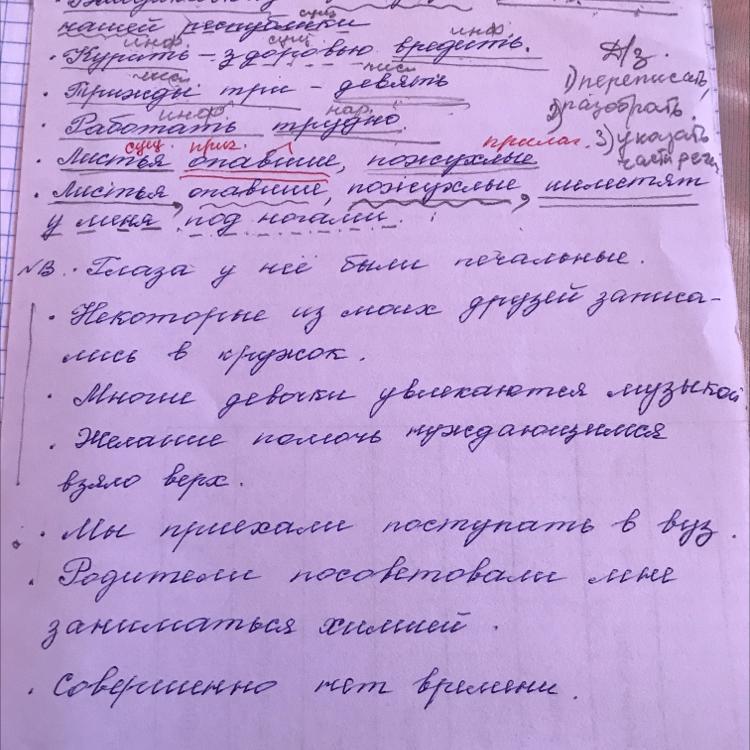 нашей республики
сущ
инф. сущ инф.
• Курить – здоровью вредить.
числ числ
• Трижды три – девять
инф нар.
• Работать трудно.
Д/з.
1) переписать,
2) разобрать.
3) указать
части речи
сущ. прич. прилаг.
• Листья опавшие, пожухлые
• Листья, опавшие, пожухлые, шелестят
у меня под ногами.
NB. • Глаза у неё были печальные.
• Некоторые из моих друзей записа-
лись в кружок.
• Многие девочки увлекаются музыкой.
• Желание помочь нуждающимся
взяло верх.
• Мы приехали поступать в вуз.
• Родители посоветовали мне
заниматься химией.
• Совершенно нет времени.